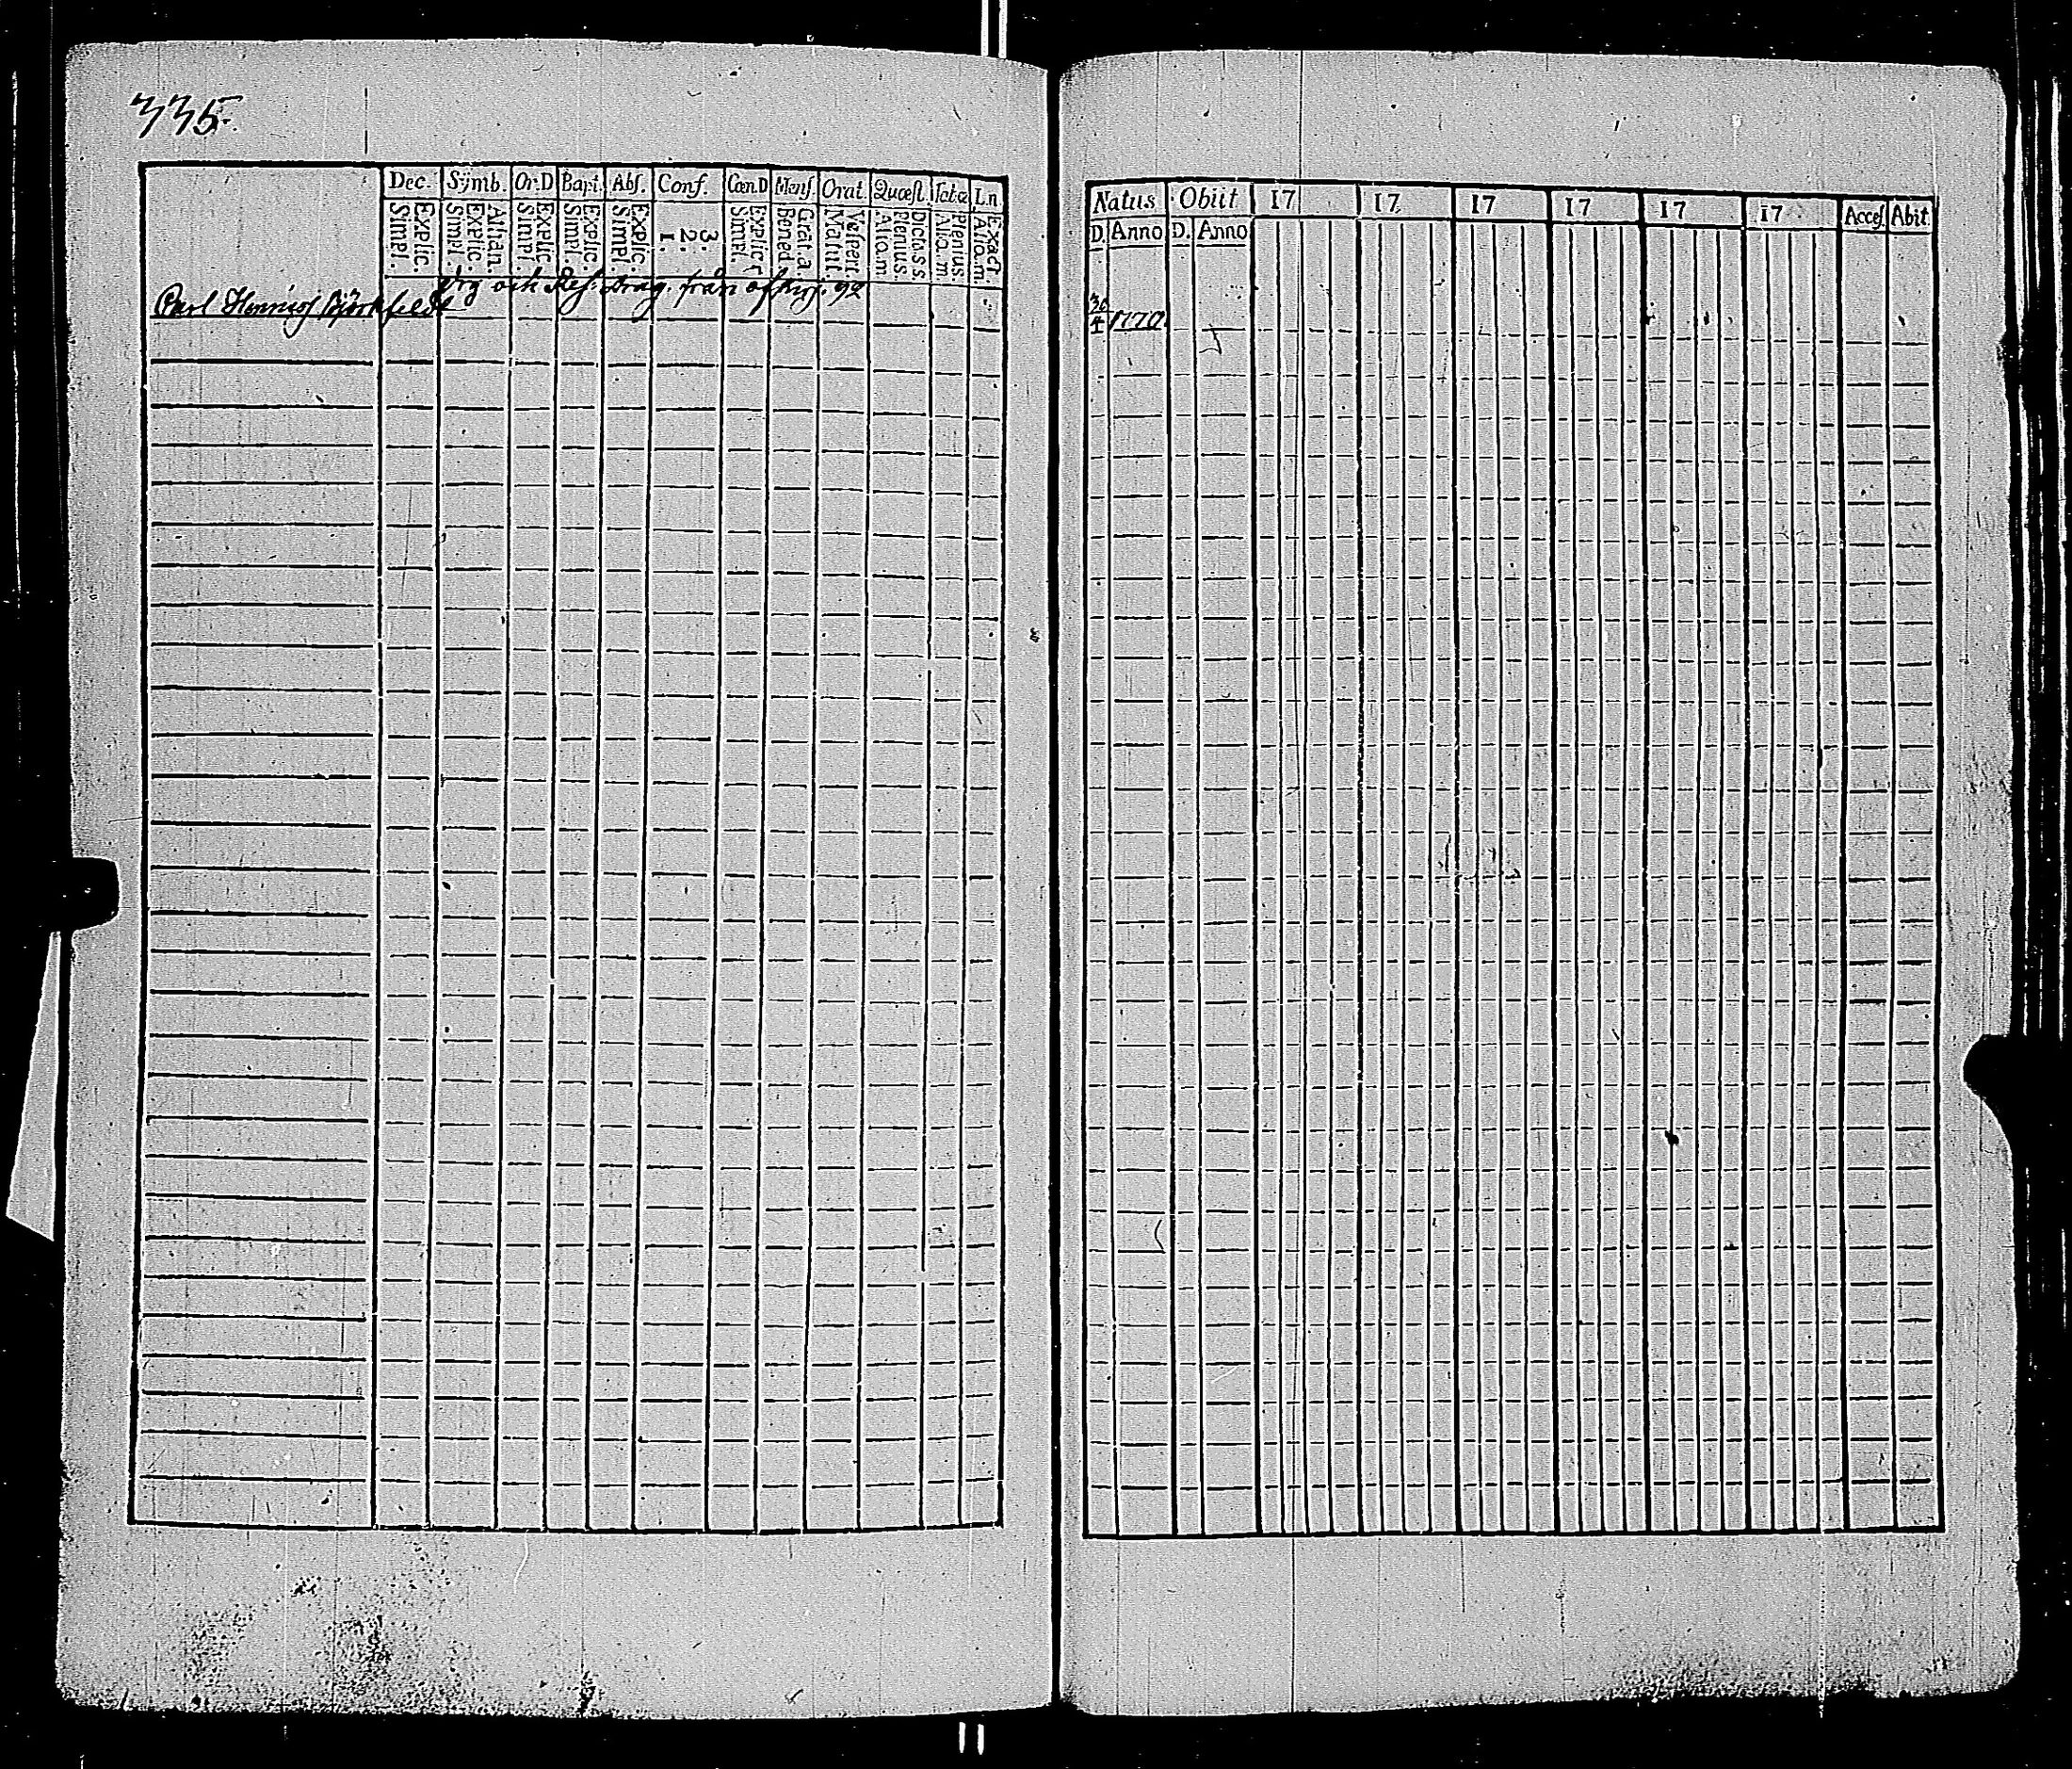 335.
Dec. Symb. Or:D Bapt. Abs. Conf. Cœn.D Mens. Orat. Quæst. Tab.œ L.n.
Simpl. Explic. Simpl. Explic. Athan. Simpl. Explic. Simpl. Explic. Simpl. Explic. 1. 2. 3. Simpl. Explic. Bened. Grat.a. Matut. Vespert. Alio.m. Plenius Dict.s.s. Alio.m. Plenius. A.o.m. Exact.
Drg och Ref: Drag. från
Carl Henrics Björkfeldt
Natus Obiit 17 17 17 17 17 17 Acces. Abit
D. Anno D. Anno
30/4 1770